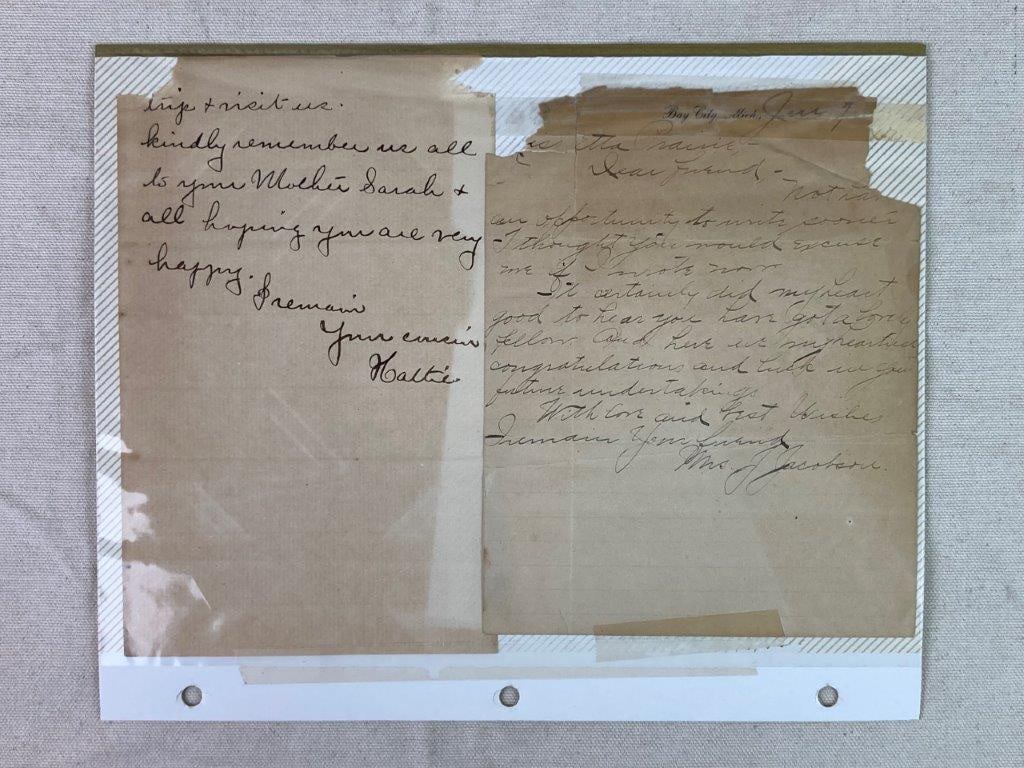 trip & visit us.
kindly remember us all
to your Mother Sarah &
all hoping you are very
happy.
I remain
Your cousin
Hattie
Bay City, Mich,
Dear friend -
Not
an opportunity to write sooner
I thought you would excuse
me if I wrote now
It certainly did my heart
good to hear you have got a
fellow. And here is my
congratulations and luck in your
future undertakings
With love and Best Wishes
I remain Your friend
Mrs J Jacobson.